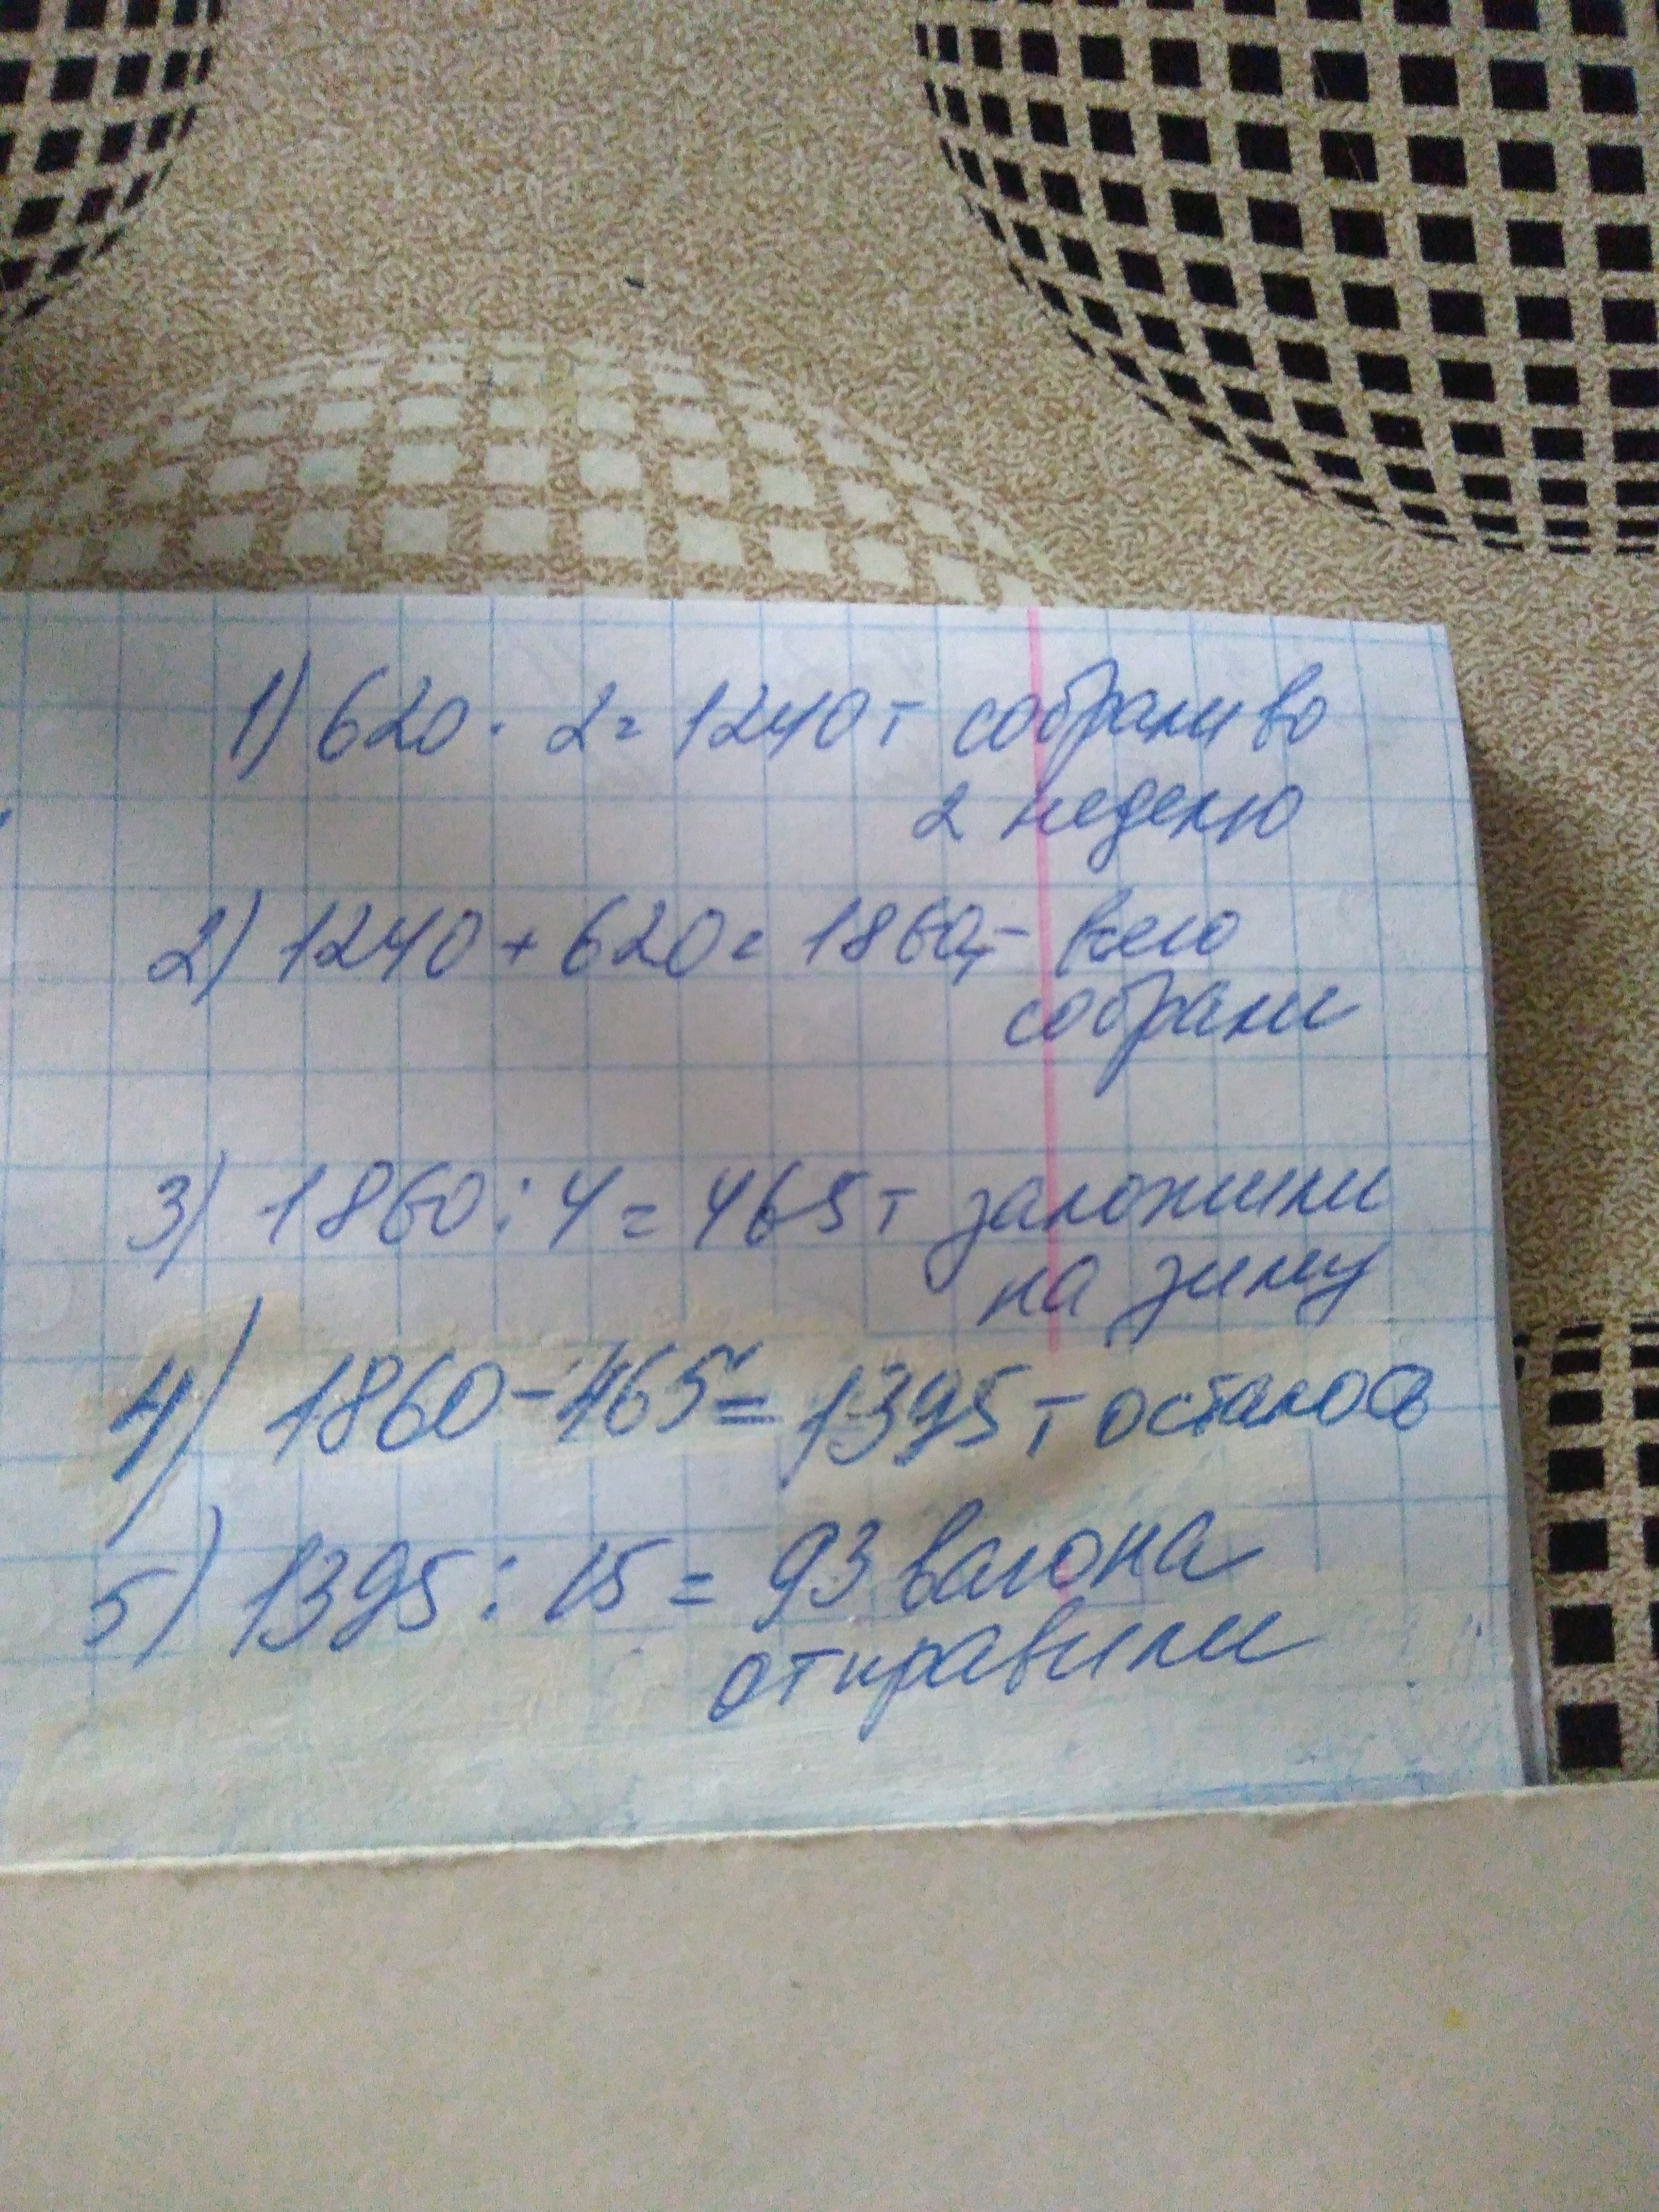 1) 620 · 2 = 1240 т собрали во
2 неделю
2) 1240 + 620 = 1860т - всего
собрали
3) 1860 : 4 = 465 т заложили
на зиму
4) 1860 - 465 = 1395 т осталось
5) 1395 : 15 = 93 вагона
отправили